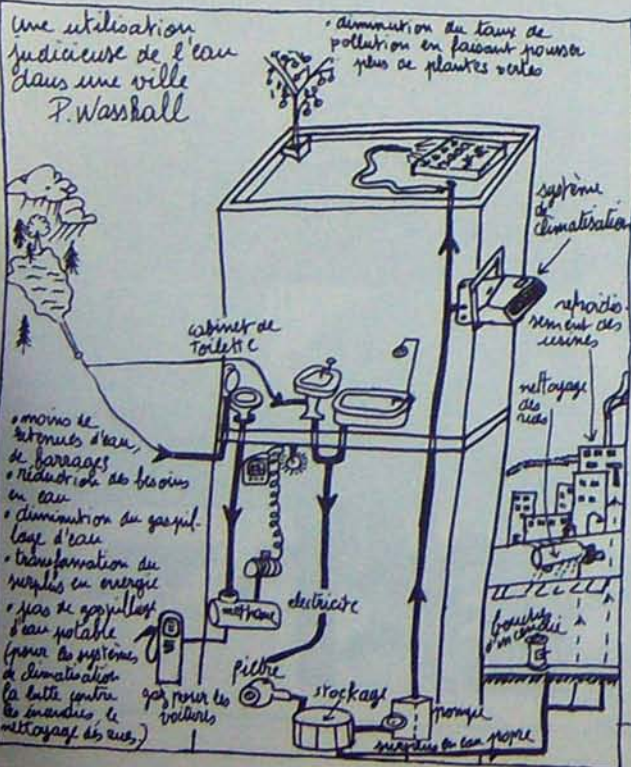 une utilisation
judicieuse de l'eau
dans une ville
P. Wasshall
• diminution du taux de
pollution en faisant pousser
plus de plantes vertes
système
de
climatisation
refroidis-
sement des
usines
nettoyage
des
rues
cabinet de
toilette
• moins de
retenues d'eau,
de barrages
• réduction des besoins
en eau
• diminution du gaspil-
lage d'eau
• transformation du
surplus en energie
• pas de gaspillage
d'eau potable
(pour les systèmes
de climatisation
la lutte contre
les incendies, le
nettoyage des rues,)
methane
electricite
gaz pour les
voitures
filtre
stockage
pompe
surplus en eau propre
bouches
d'incendie